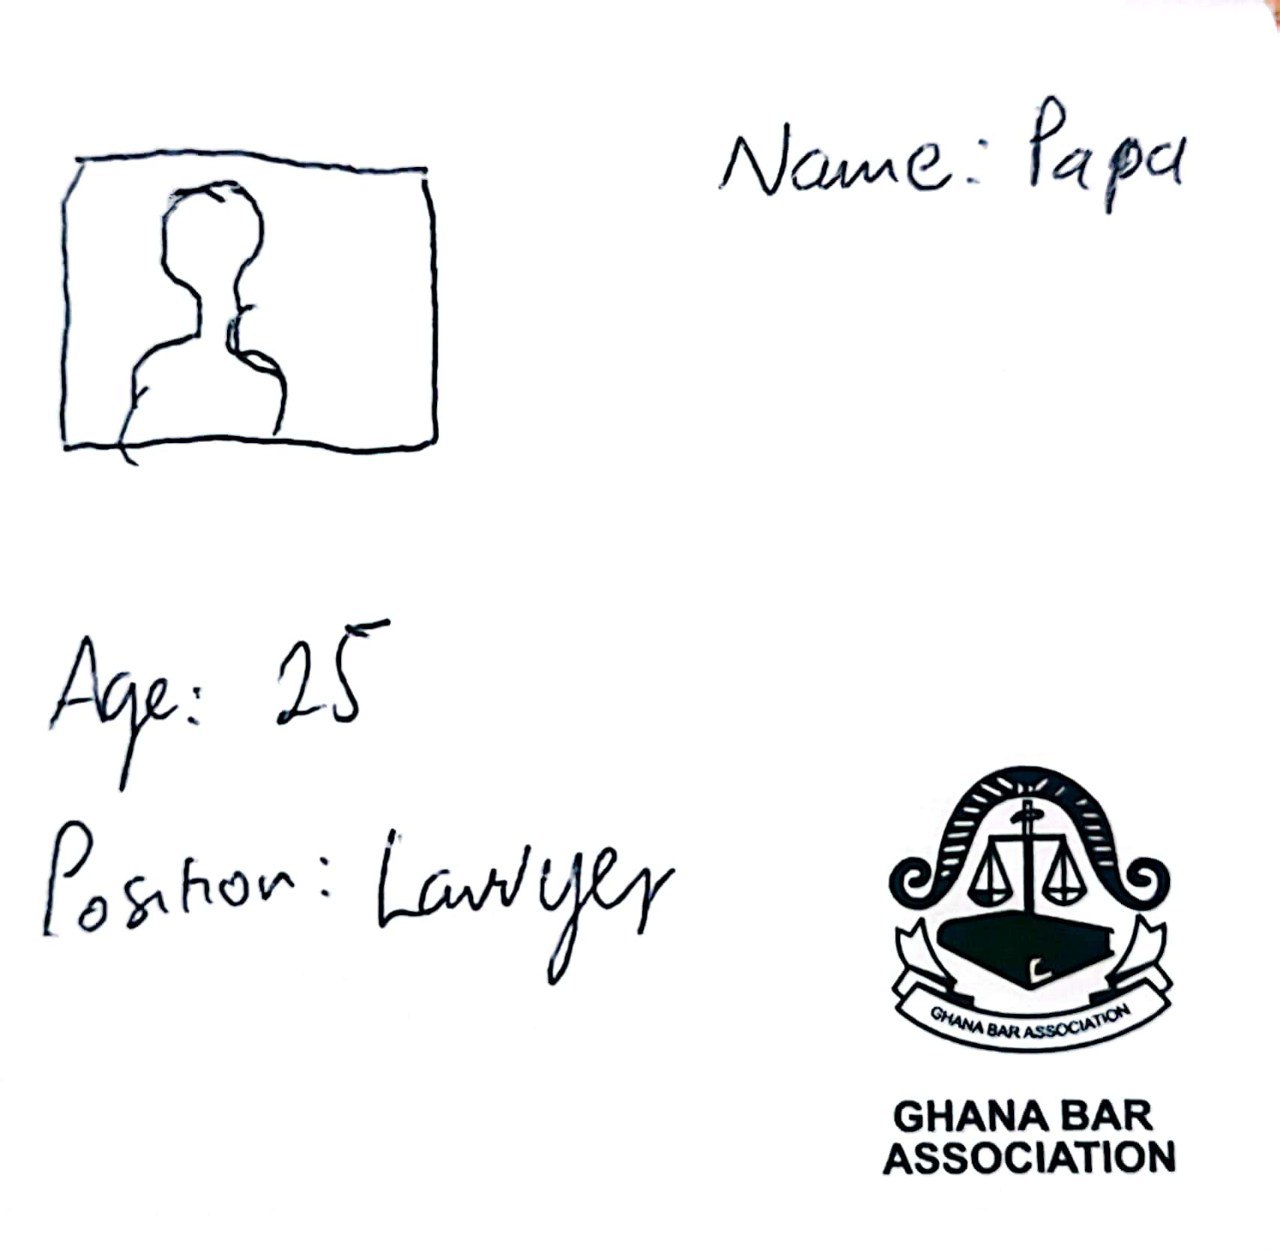 Name: Papa
Age: 25
Position: Lawyer
GHANA BAR ASSOCIATION
GHANA BAR
ASSOCIATION